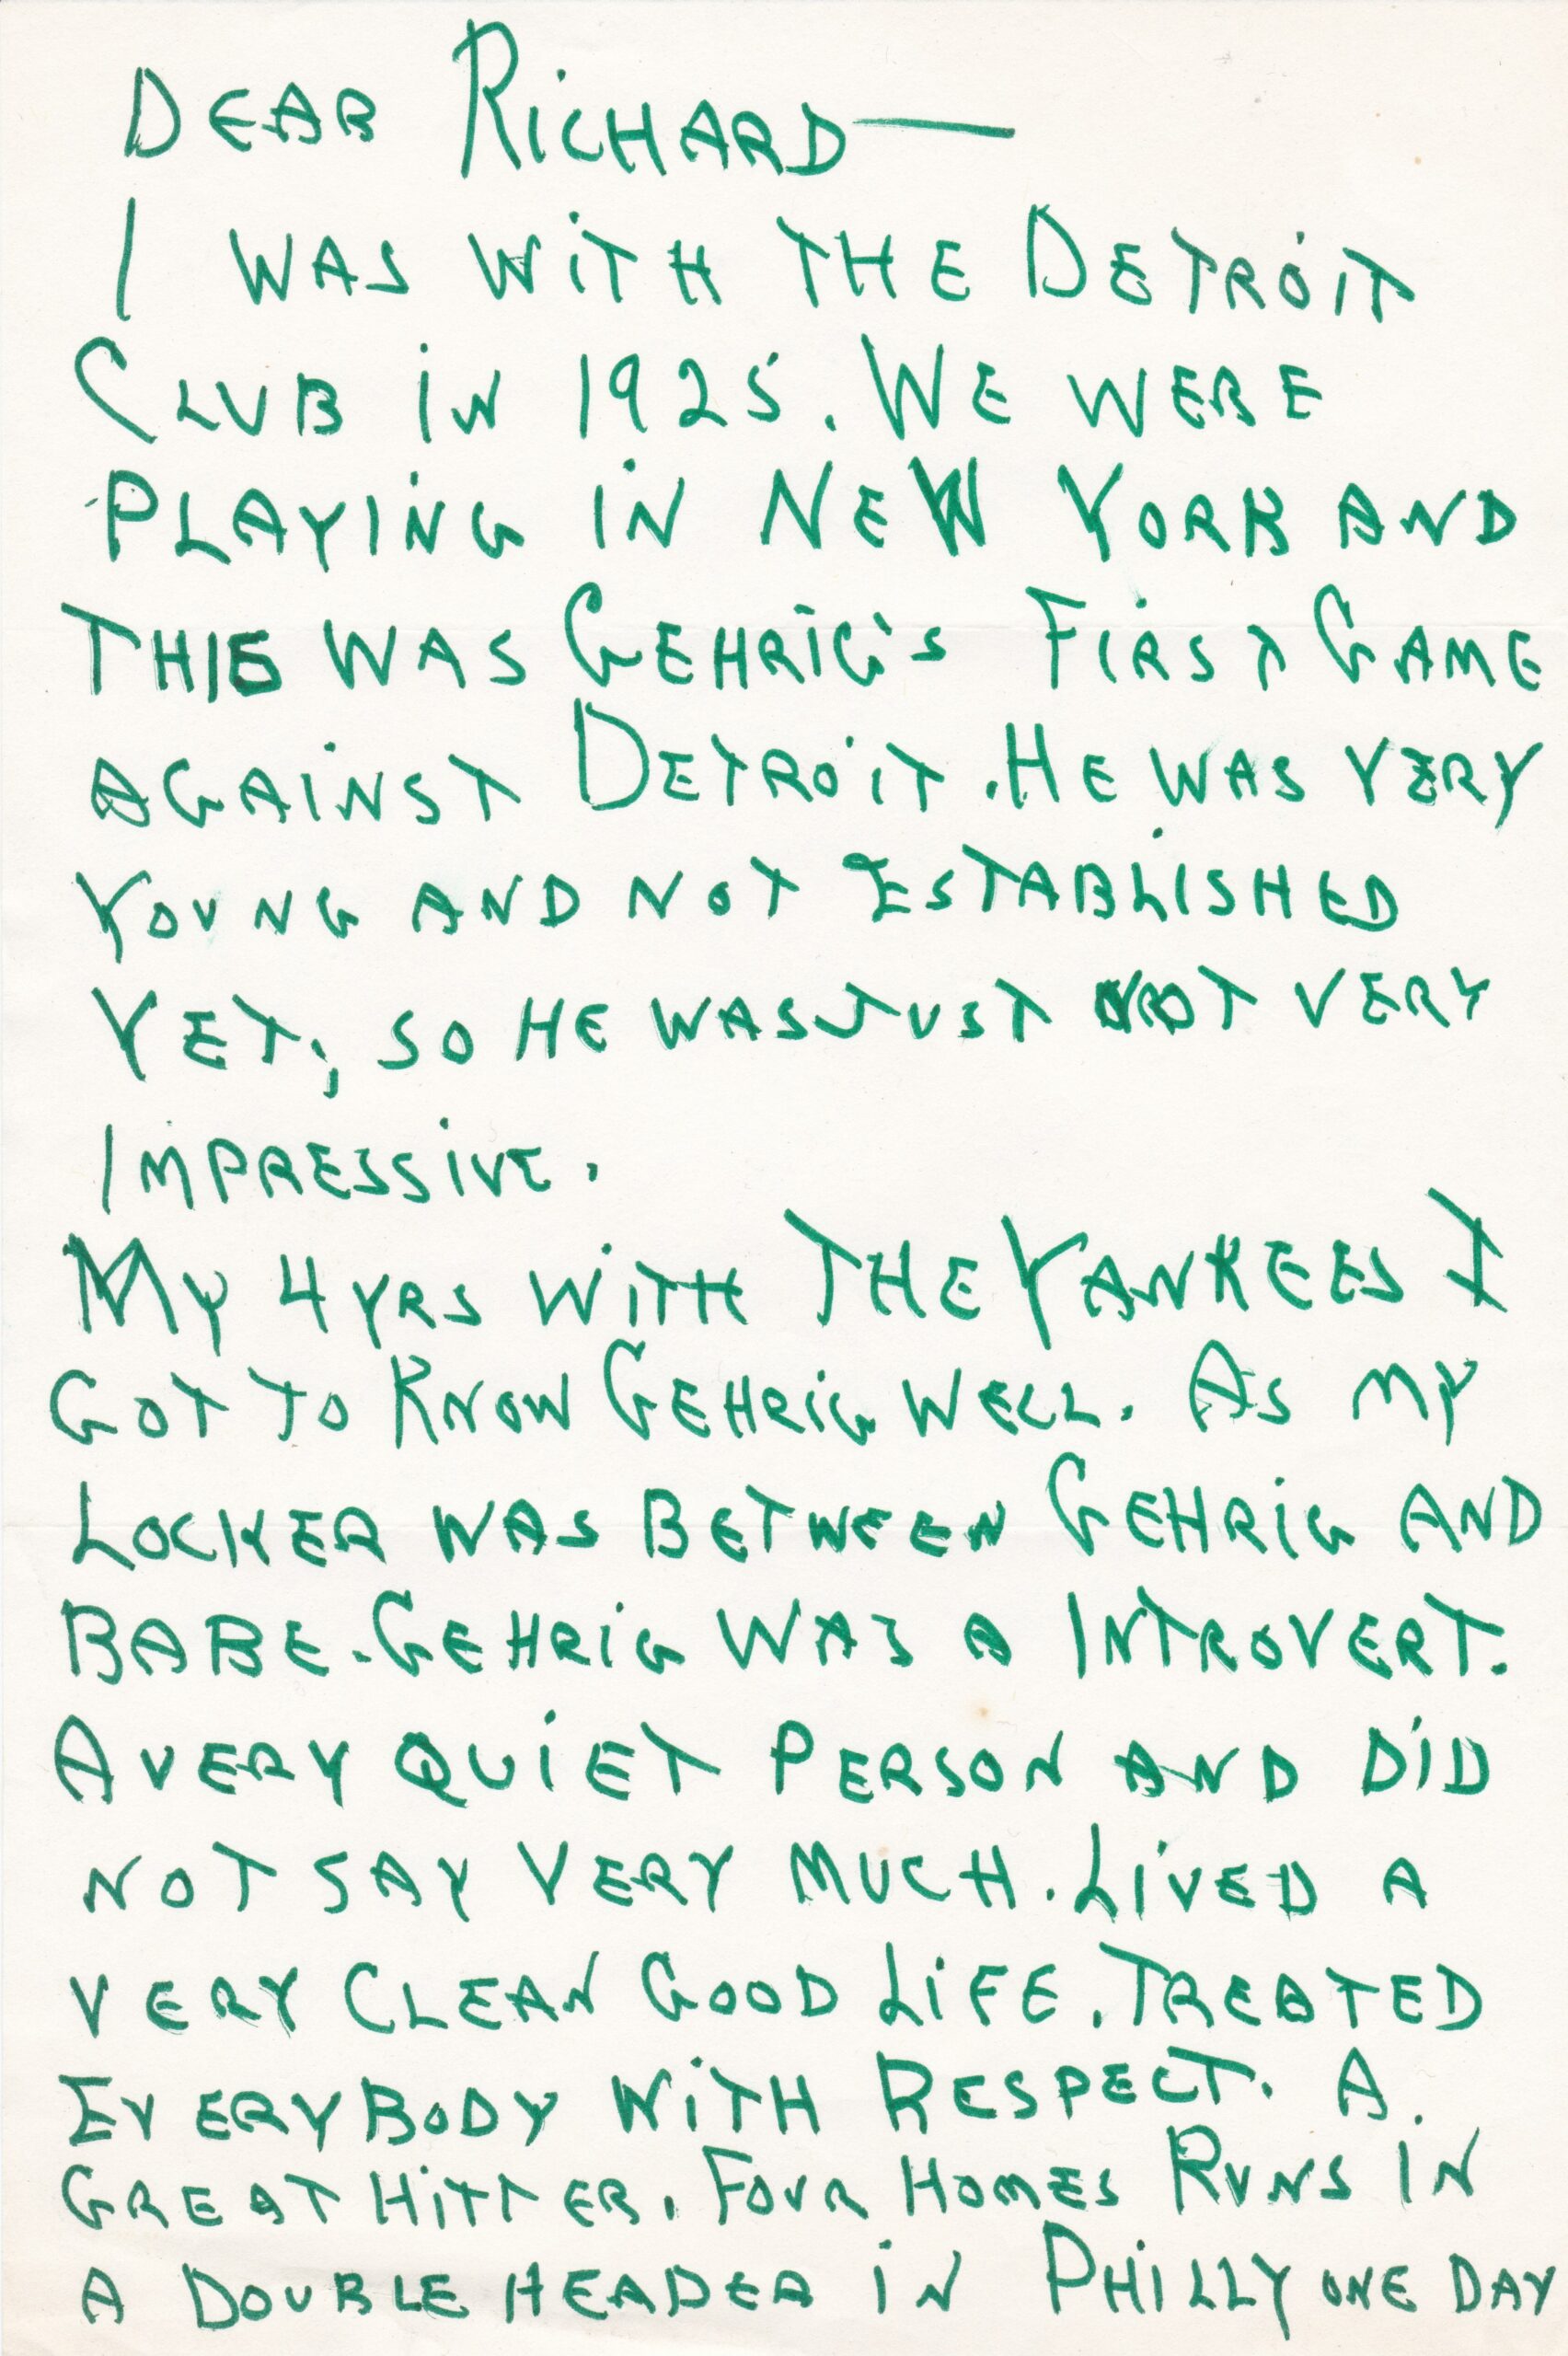 DEAR RICHARD—
I WAS WITH THE DETROIT
CLUB IN 1925. WE WERE
PLAYING IN NEW YORK AND
THIS WAS GEHRIG'S FIRST GAME
AGAINST DETROIT. HE WAS VERY
YOUNG AND NOT ESTABLISHED
YET; SO HE WAS JUST NOT VERY
IMPRESSIVE.
MY 4 YRS WITH THE YANKEES I
GOT TO KNOW GEHRIG WELL. AS MY
LOCKER WAS BETWEEN GEHRIG AND
BABE. GEHRIG WAS A INTROVERT.
A VERY QUIET PERSON AND DID
NOT SAY VERY MUCH. LIVED A
VERY CLEAN GOOD LIFE. TREATED
EVERYBODY WITH RESPECT. A.
GREAT HITTER. FOUR HOMES RUNS IN
A DOUBLE HEADER IN PHILLY ONE DAY